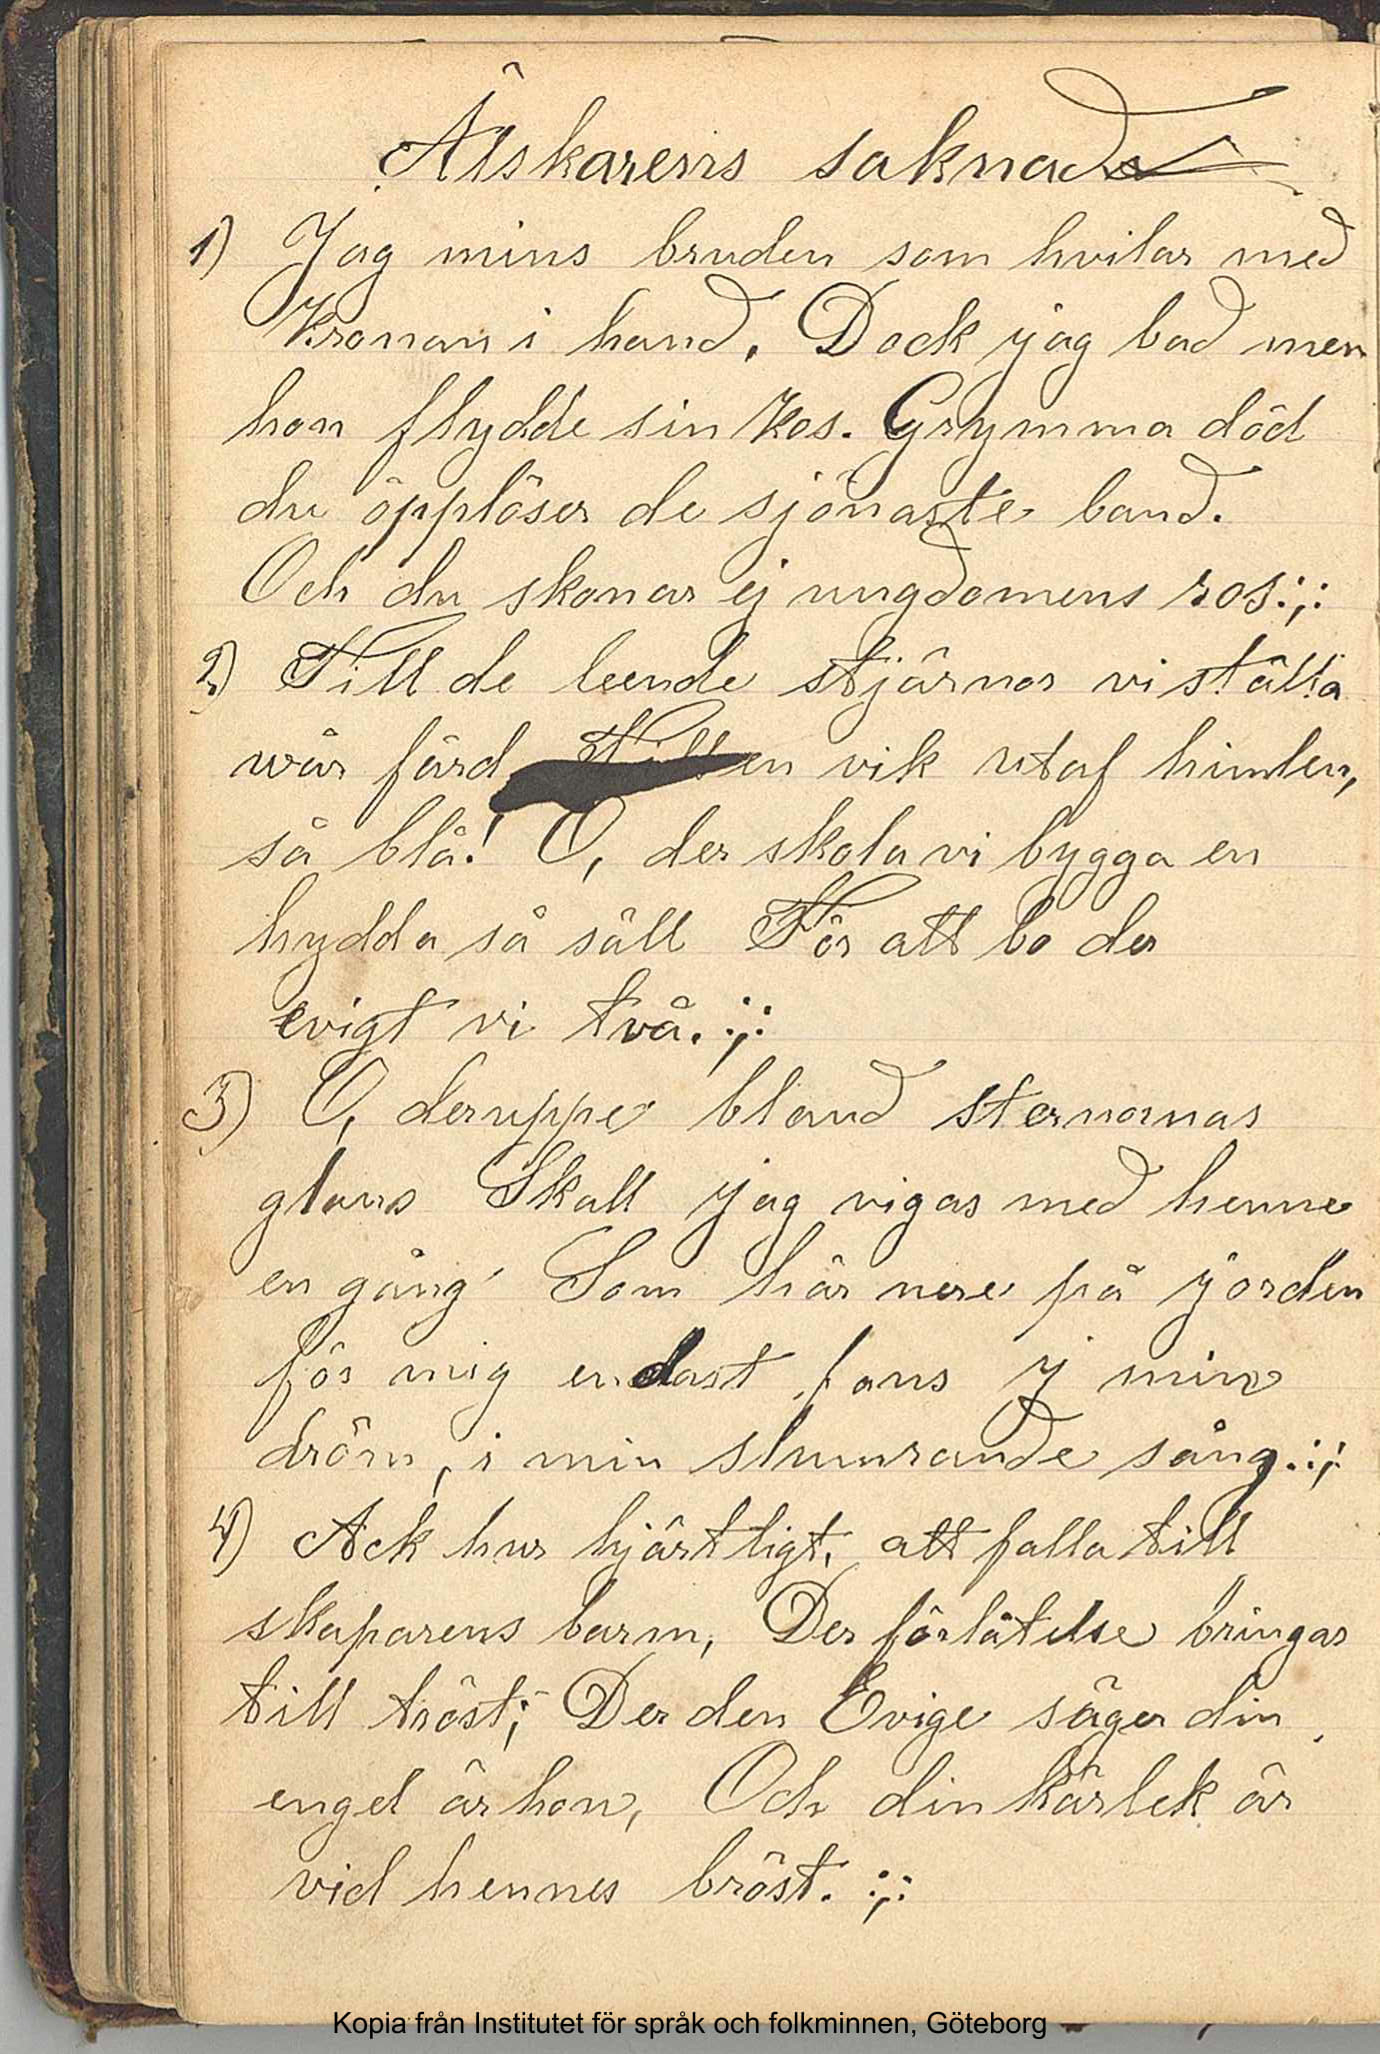 Älskarens saknad
1) Jag mins bruden som hvilar med
Kronan i hand. Dock jag bad men
hon flydde sin kos. Grymma död
du öpplöser de sjönaste band.
Och du skonar ej ungdomens ros:;:
2) Till de leende stjärnor vi ställa
wår färd en vik utaf himlen,
så blå! O, der skola vi bygga en
hydda så säll För att bo der
evigt vi två. :;:
3) O, deruppe bland sternornas
glans Skall jag vigas med henne
en gång Som här nere på jorden
för mig endast fans j min
dröm, i min slumrande sång. :;:
4) Ack hur hjärtligt, att falla till
skaparens barm, Der förlåtelse bringas
till tröst; Der den Evige säger din
engel är hon, Och din kärlek är
vid hennes bröst. :;:
Kopia från Institutet för språk och folkminnen, Göteborg